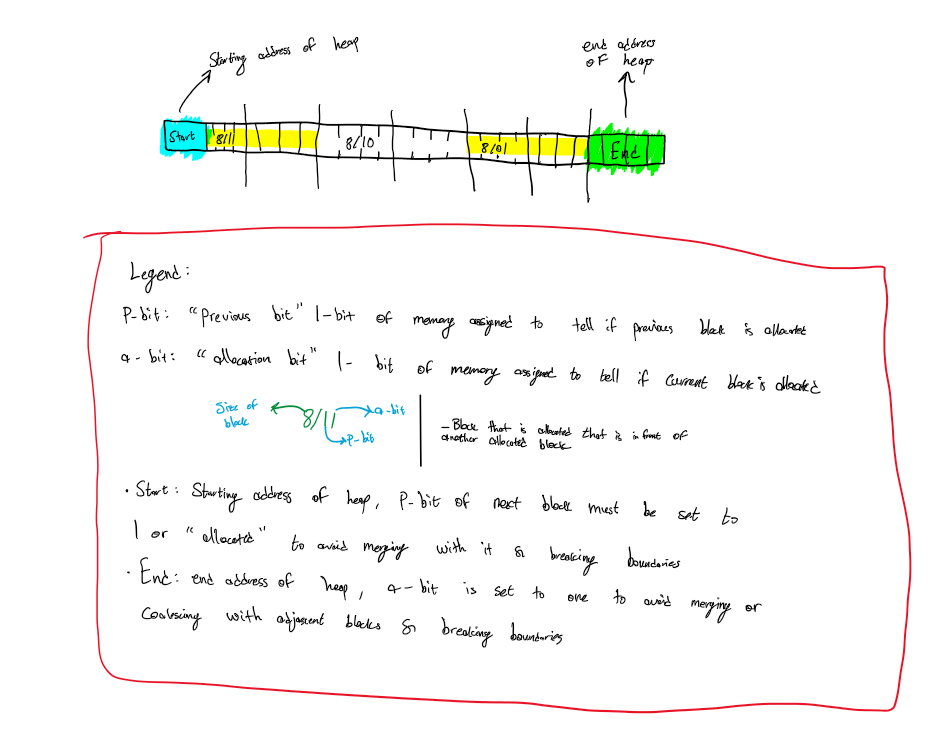 Starting address of heap
end address
of heap
Start 8/11 8/10 8/01 End
Legend:
P-bit: "Previous bit" 1-bit of memory assigned to tell if previous block is allocated
a-bit: "allocation bit" 1-bit of memory assigned to tell if current block is allocated
Size of
block
8/11
a-bit
P-bit
- Block that is allocated that is in front of
another allocated block
• Start: Starting address of heap, P-bit of next block must be set to
1 or "allocated" to avoid merging with it & breaking boundaries
• End: end address of heap, a-bit is set to one to avoid merging or
Coalescing with adjacent blocks & breaking boundaries